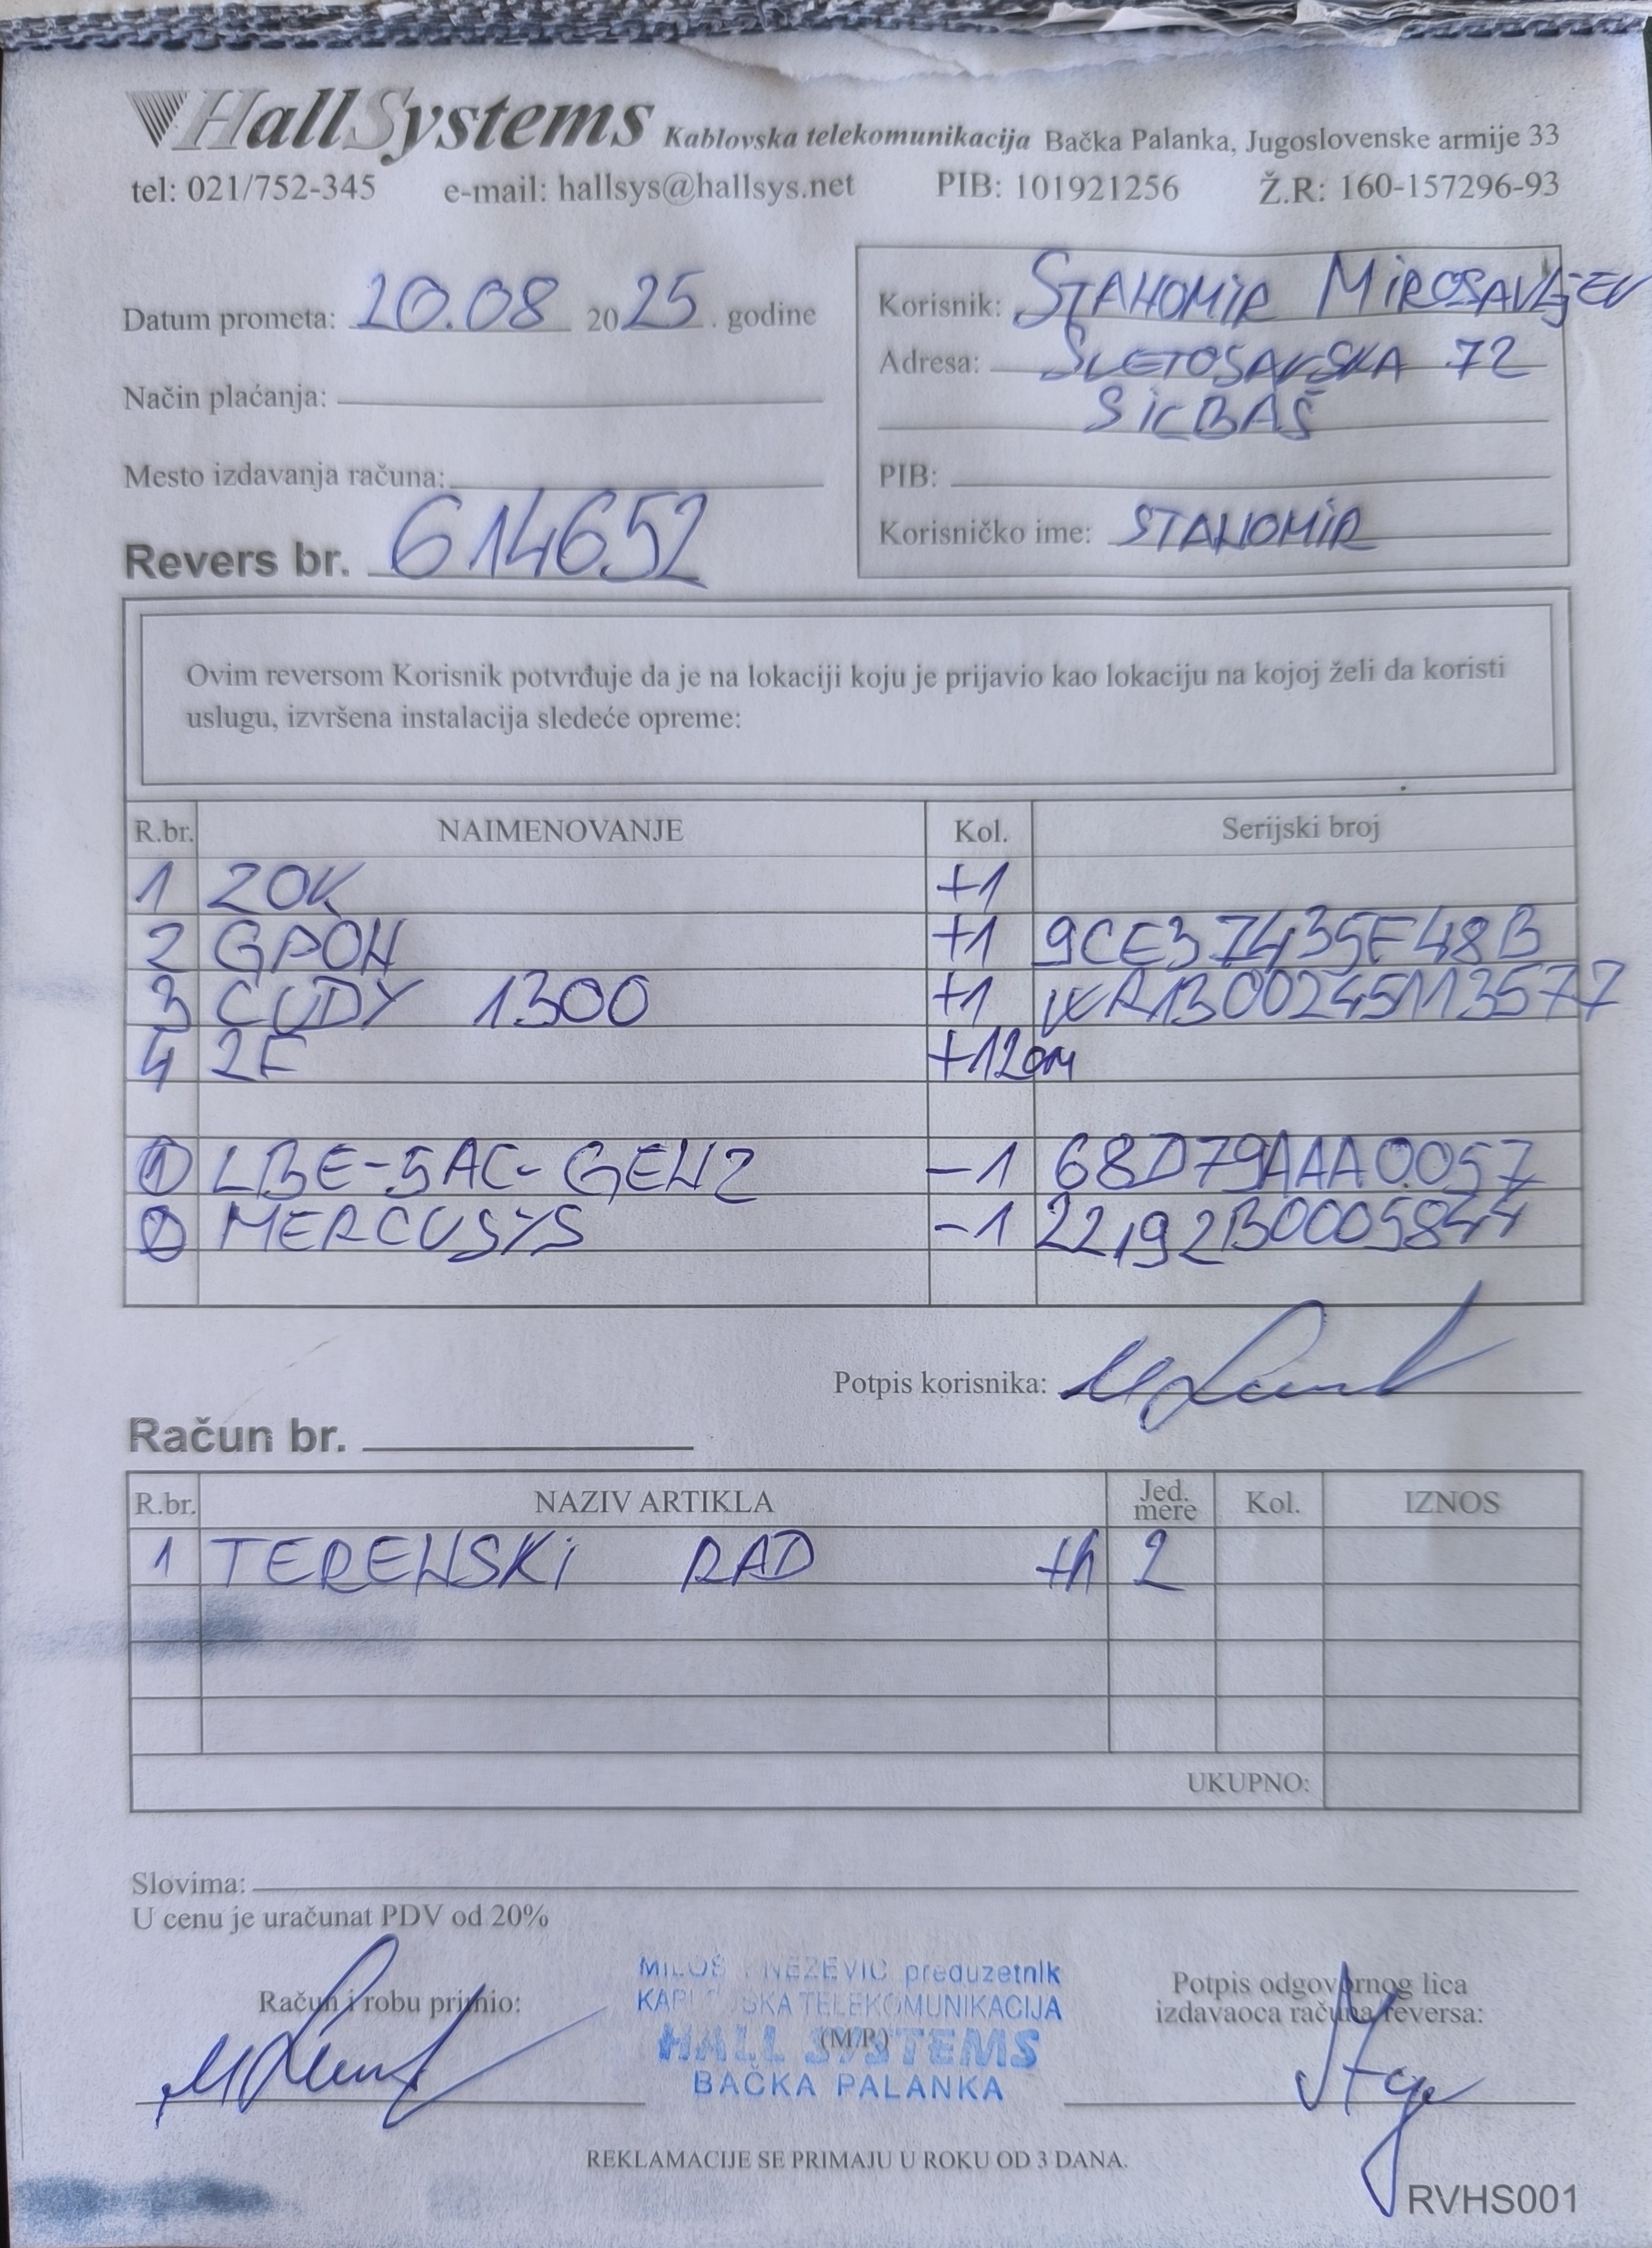 HallSystems Kablovska telekomunikacija Bačka Palanka, Jugoslovenske armije 33
tel: 021/752-345 e-mail: hallsys@hallsys.net PIB: 101921256 Ž.R: 160-157296-93
Datum prometa: 20.08 2025. godine
Način plaćanja:
Mesto izdavanja računa:
Revers br. 614652
Korisnik: STANOMIR MIROSAVLJEV
Adresa: SVETOSAVSKA 72
SIRBAŠ
PIB:
Korisničko ime: STANOMIR
Ovim reversom Korisnik potvrđuje da je na lokaciji koju je prijavio kao lokaciju na kojoj želi da koristi
uslugu, izvršena instalacija sledeće opreme:
R.br. NAIMENOVANJE Kol. Serijski broj
1 ZOK +1
2 GPON +1 9CE37435F48B
3 CUDY 1300 +1 WR1300245113577
4 2F +120m
1 LBE-5AC-GEN2 -1 68D79AAA0057
2 MERCUSYS -1 22192B0005844
Potpis korisnika:
Račun br.
R.br. NAZIV ARTIKLA Jed. mere Kol. IZNOS
1 TERENSKI RAD +h 2
UKUPNO:
Slovima:
U cenu je uračunat PDV od 20%
Račun i robu primio:
MILOŠ KNEŽEVIĆ preduzetnik
KABLOVSKA TELEKOMUNIKACIJA
(M.P.)
HALL SYSTEMS
BAČKA PALANKA
Potpis odgovornog lica
izdavaoca računa/reversa:
REKLAMACIJE SE PRIMAJU U ROKU OD 3 DANA.
RVHS001